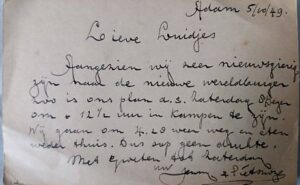 Adam 5/10/49.
Lieve Luidjes
Aangezien wij zeer nieuwsgierig
zijn naar de nieuwe wereldburger
zoo is ons plan a.s. Zaterdag 8
om ± 12½ uur in Kampen te zijn
Wij gaan om 4.29 weer weg en eten
weder thuis. Dus svp geen drukte.
Met groeten tot Zaterdag